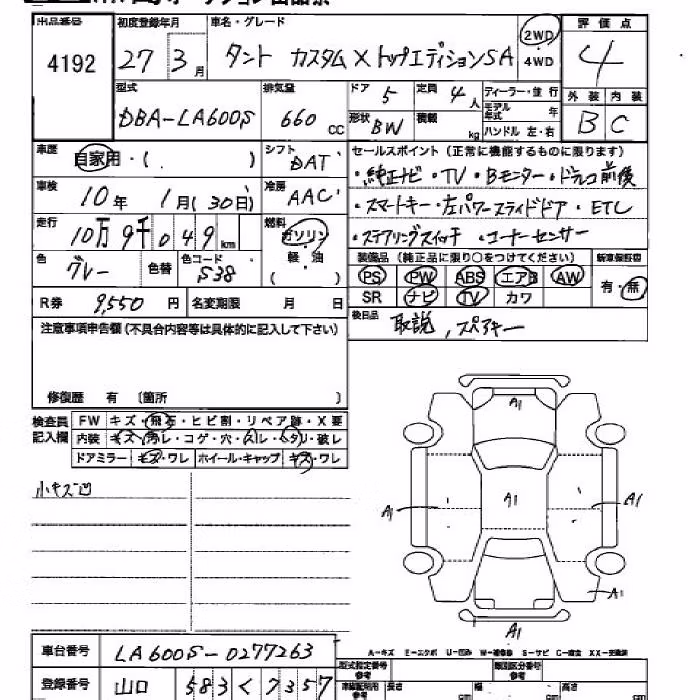 出品番号 初度登録年月 車名・グレード 評価点
4192 27年 3月 タント カスタムXトップエディションSA 2WD・4WD 4
型式 排気量 ドア 定員 ディーラー・並行 外装 内装
DBA-LA600S 660 CC 5 4人 モデル年式 年 B C
形状 BW 積載 kg ハンドル 左・右
車歴 自家用・( ) シフト DAT セールスポイント (正常に機能するものに限ります)
・純正ナビ・TV・Bモニター・ドラレコ前後
車検 10年 1月(30日) 冷房 AAC
・スマートキー・左パワースライドドア・ETC
走行 10万9千049km 燃料 ガソリン・軽油 ( )
・ステアリングスイッチ・コーナーセンサー
色 グレー 色替 色コード S38
装備品 (純正品に限り○をつけてください) 新車保証書
PS PW ABS エアB AW 有・無
SR ナビ TV カワ
R券 9,550円 名変期限 月 日
後日品 取説, スペアキー
注意事項申告欄(不具合内容等は具体的に記入して下さい)
修復歴 有 〔箇所 〕
検査員記入欄 FW キズ・飛石・ヒビ割・リペア跡・X要
内装 キズ・汚レ・コゲ・穴・スレ・ヘタリ・破レ
ドアミラー キズ・ワレ ホイール・キャップ キズ・ワレ
小キズ凹
A1
A1 A1 A1
A1
A1
A-キズ E-エクボ U-凹み W-補修跡 S-サビ C-腐食 XX-交換済
車台番号 LA600S-0277263
型式指定番号 参考 類別区分番号 参考
登録番号 山口 583 く 7357
車庫証明用 参考 長さ cm 幅 cm 高さ cm